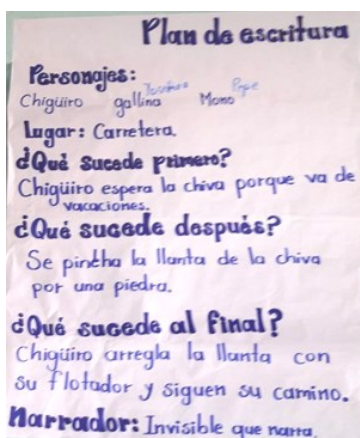 Plan de escritura
Personajes:
Pepe
Chigüiro gallina Mono
Lugar: Carretera.
¿Qué sucede primero?
Chigüiro espera la chiva porque va de
vacaciones.
¿Qué sucede después?
Se pincha la llanta de la chiva
por una piedra.
¿Qué sucede al final?
Chigüiro arregla la llanta con
su flotador y siguen su camino.
Narrador: Invisible que narra.